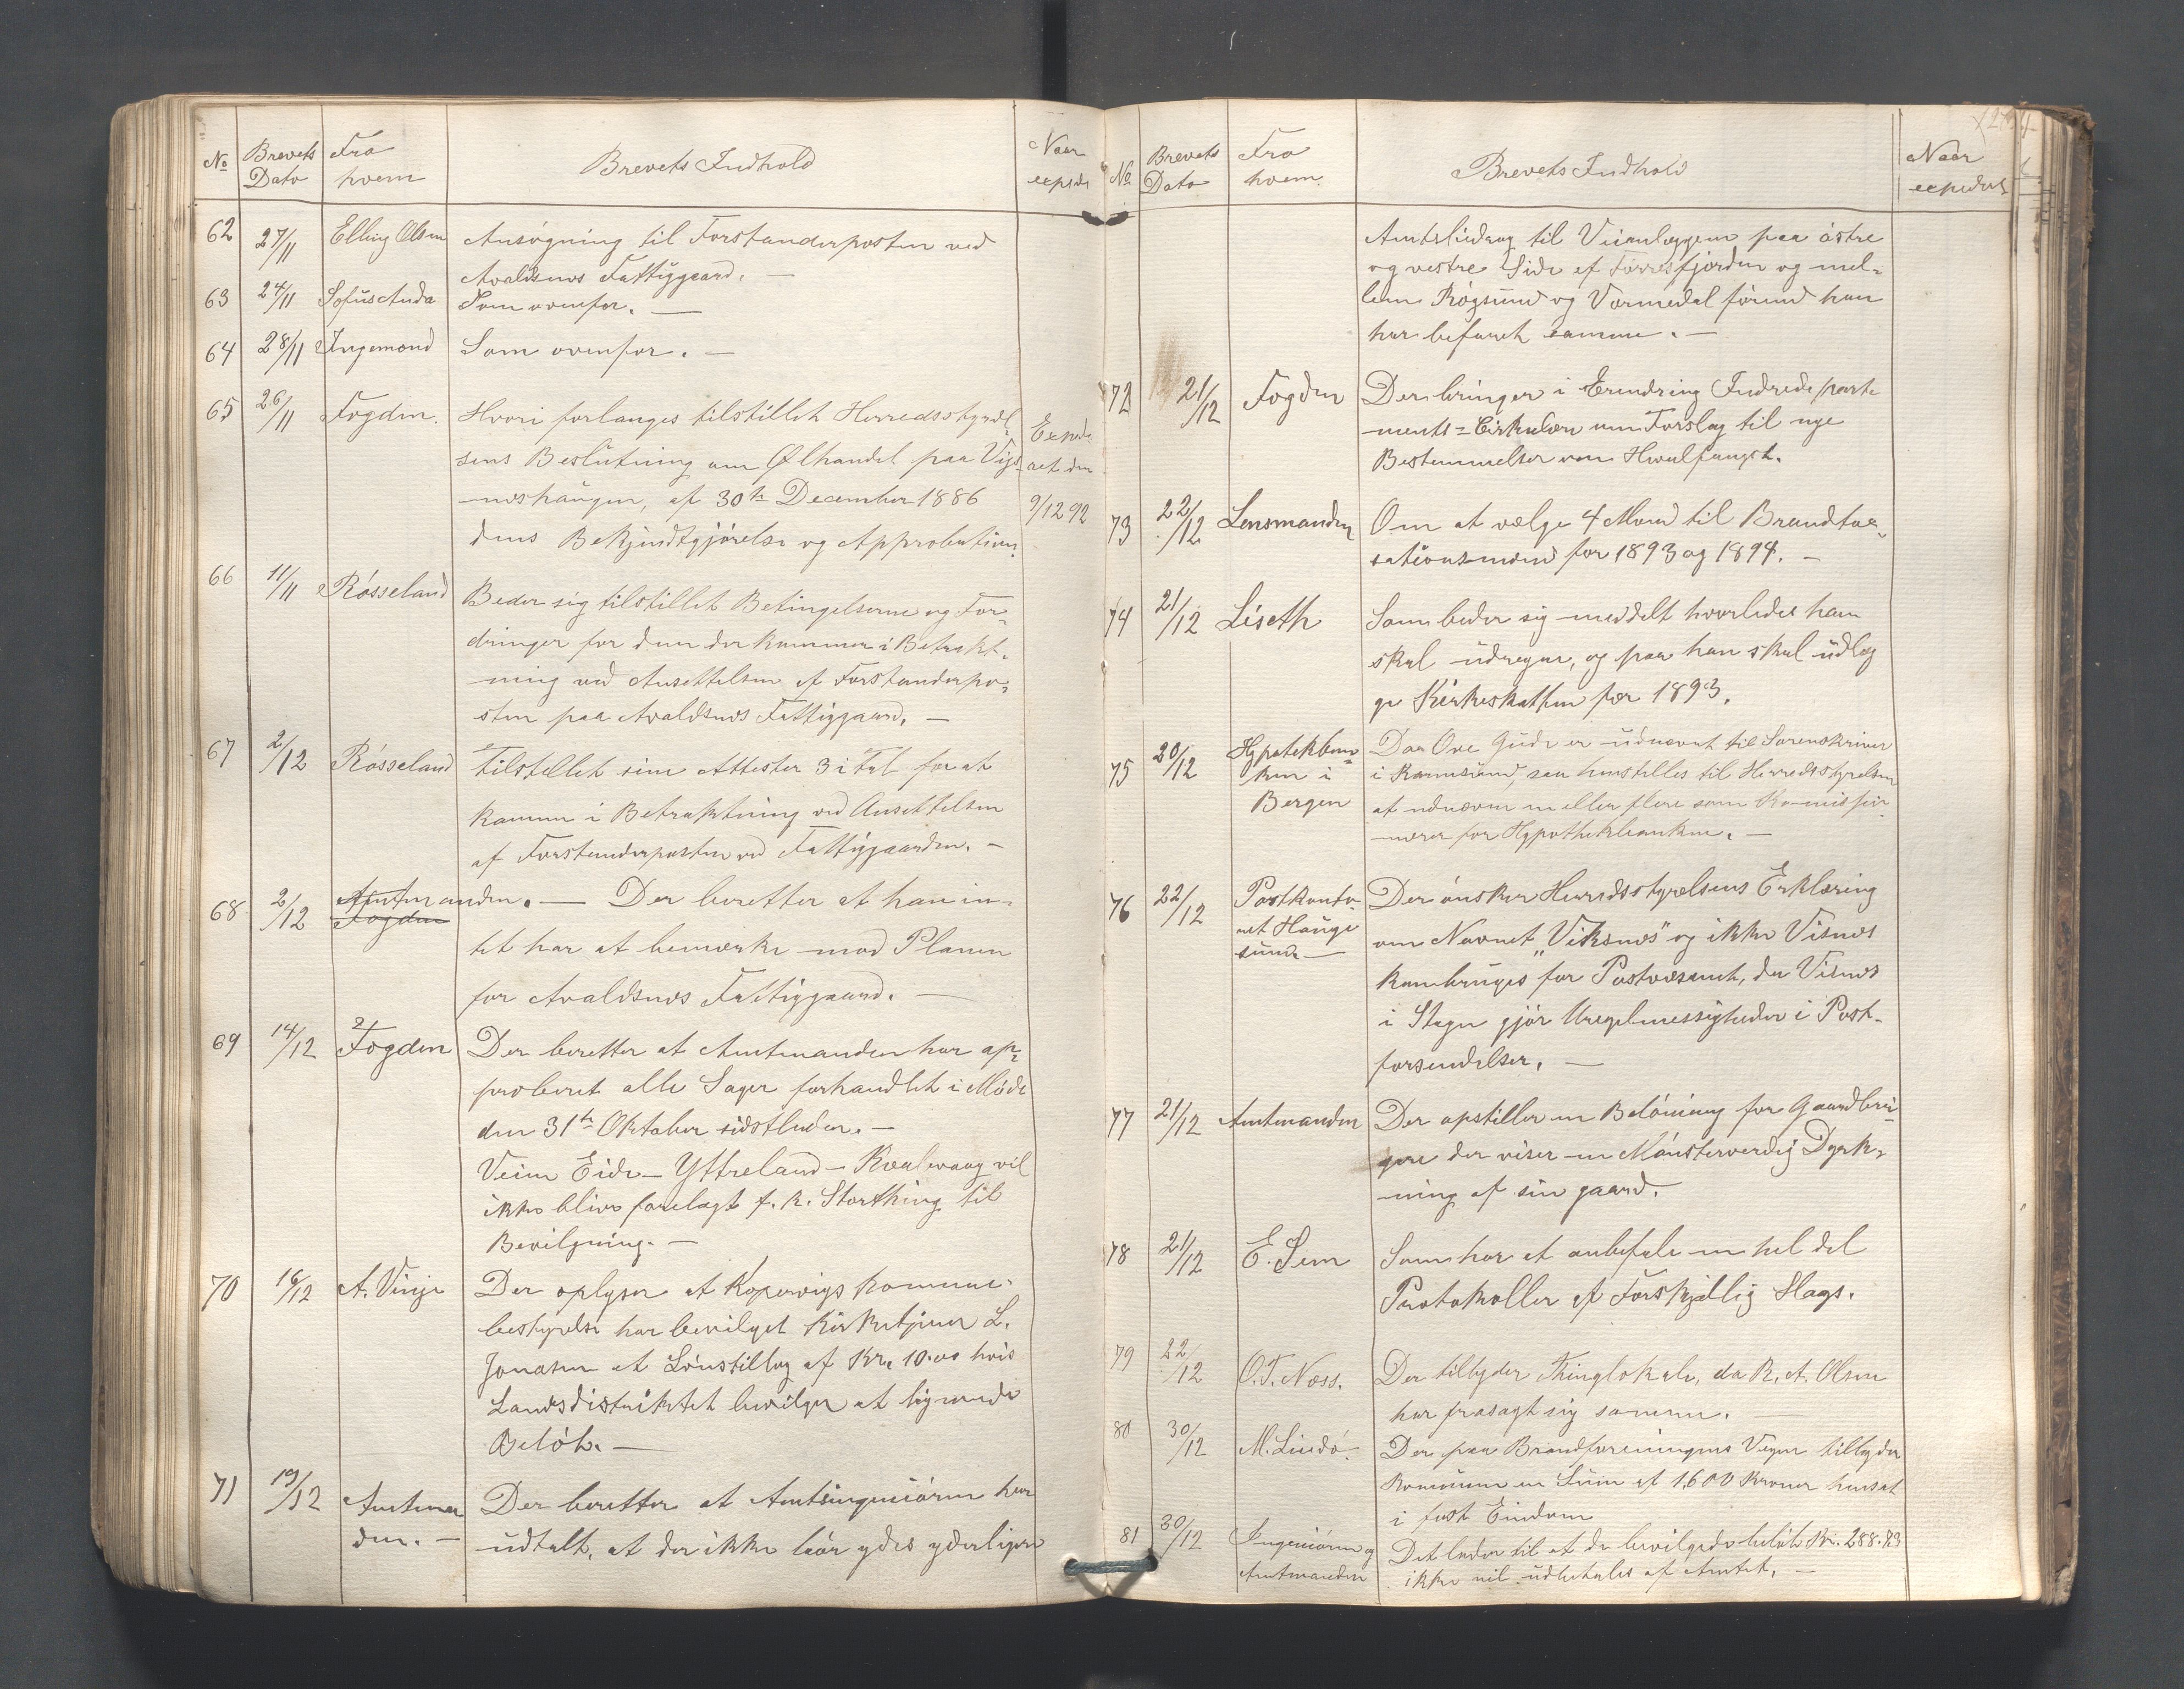 No
Brevets Dato
Fra hvem
Brevets Indhold
Naar exped.
62 27/11 Elling Olsen Ansøgning til Forstanderposten ved
Avaldsnes Fattiggaard. —
63 24/11 Sofus Anda Som ovenfor. —
64 28/11 Ingemond Som ovenfor. —
65 26/11 Fogden. Hvori forlanges tilstillet Herredsstyrel-
sens Beslutning om Ølhandel paa Vigs-
neshaugen, af 30te December 1886
dens Bekjendtgjørelse og Approbation.
Exped.
aet den
9/12 92
66 11/11 Røsseland Beder sig tilstillet Betingelserne og For-
dringer for dem der kommer i Betrakt-
ning ved Ansettelsen af Forstanderpo-
sten paa Avaldsnes Fattiggaard. —
67 2/12 Røsseland Tilstellet sine Attester 3 i Tal for at
komme i Betraktning ved Ansettelsen
af Forstanderposten ved Fattiggaarden. —
68 2/12 Amtmanden. — Der beretter at han in-
Fogden
tet har at bemærke mod Planen
for Avaldsnes Fattiggaard. —
69 14/12 Fogden Der beretter at Amtmanden har ap-
proberet alle Sager forhandlet i Møde
den 31te Oktober sidstleden. —
Veien Eide – Yttreland – Kvalevaag vil
ikke blive forelagt f. k. Storthing til
Bevilgning. —
70 16/12 A. Vinje Der oplyser at Kopervigs Komune-
bestyrelse har bevilget Kirketjener L.
Jonasen et Lønstillæg af Kr. 10.00 hvis
Landsdistriktet bevilger et lignende
Beløb. —
71 19/12 Amtman
den. — Der beretter at Amtsingeniøren har
udtalt, at der ikke bør ydes yderligere
No
Brevets Dato
Fra hvem.
Brevets Indhold
Naar expederet
Amtsbidrag til Veianleggene paa østre
og vestre Side af Førresfjorden og mel-
lem Røgsund og Vormedal førend han
har befaret samme. —
72 21/12 Fogden Der bringer i Erendring Indredeparte
ments=Cirkulære om Forslag til nye
Bestemmelser om Hvalfangst.
73 22/12 Lensmanden Om at vælge 4 Mænd til Brandtax-
sationsmænd for 1893 og 1894. —
74 21/12 Liseth Som beder sig meddelt hvorledes han
skal udregne, og paa han skal udlæg
ge Kirkeskatten for 1893.
75 20/12 Hypotekban-
ken i
Bergen Daa Ove Gude er udnævnt til Sorenskriver
i Karmsund, saa henstilles til Herredsstyrelsen
at udnævne en eller flere som Komissio-
nærer for Hypothekbanken. —
76 22/12 Postkonto-
ret Hauge
sund — Der ønsker Herredsstyrelsens Erklæring
om Navnet „Viksnes" og ikke Visnes
kan bruges for Postvæsenet, da Visnes
i Stegen gjør Uregelmessigheder i Post-
forsendelser. —
77 21/12 Amtmanden Der opstiller en Belønning for Gaardbru-
gere der viser en Mønsterverdig Dyrk-
ning af sin gaard.
78 21/12 E. Sem Som har at anbefale en hel del
Protokoller af Forskjellig Slags.
79 22/12 O. T. Næss. Der tilbyder Thinglokale, da K. A. Olsen
har frasagt sig samme. —
80 30/12 M. Lindø. Der paa Brandforeningens Vegne tilbyder
Komunen en Sum af 1,600 Kroner
i fast Eiendom
81 30/12 Ingeniøren og
Amtmanden Det lader til at de bevilgede beløb Kr. 288.73
ikke vil udbetales af Amtet. —